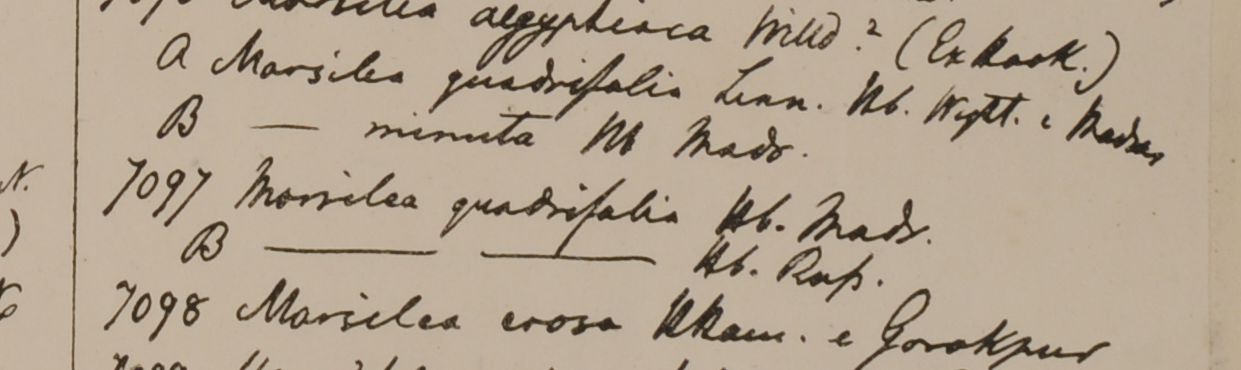 Marsilea aegyptiaca Willd? (Ex Hook.)
A Marsilea quadrifolia Linn. Hb. Wight. e Madras
B — minuta Hb Madr.
7097 Marsilea quadrifolia Hb. Madr.
B — — Hb. Rup.
7098 Marsilea erosa HHam. e Gorakpur